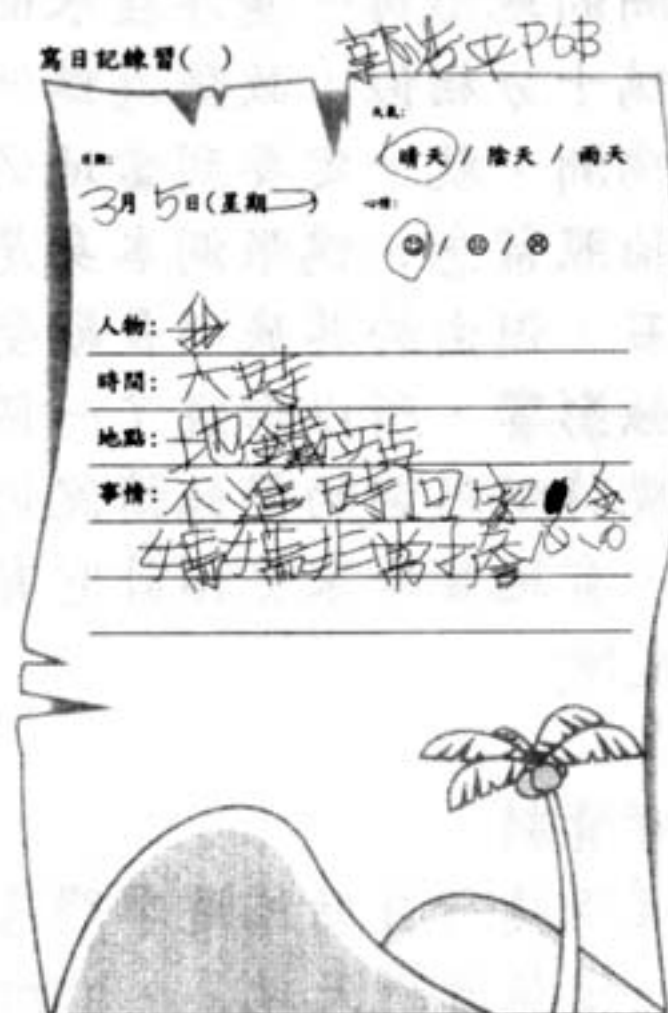 寫日記練習( )
郭浩平P6B
天氣:
日期:
晴天 / 陰天 / 雨天
3月5日(星期二)
心情:
人物:
時間: 六時
地點: 地鐵站
事情: 不準時回家,令
媽媽非常擔心。